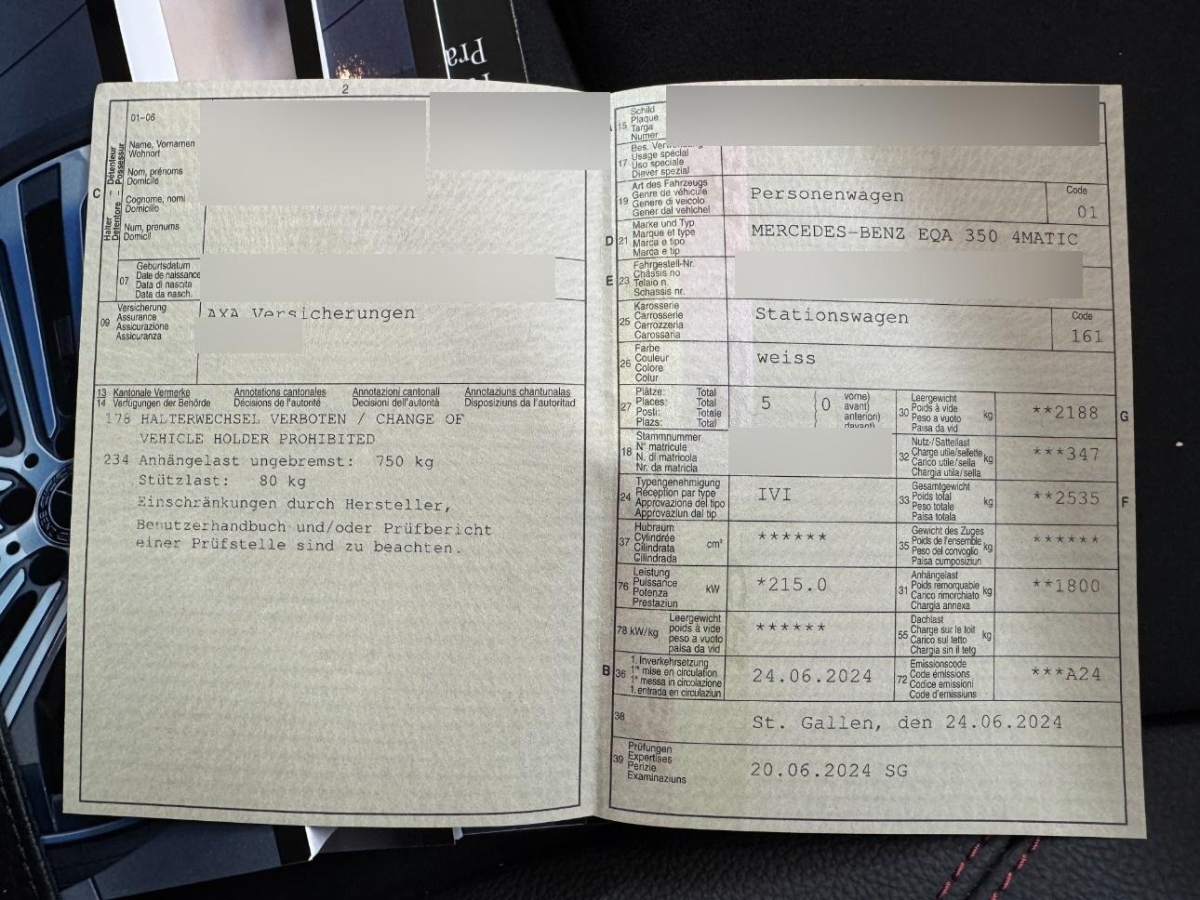 Pra
2
01-06
Name, Vornamen
Wohnort
Nom, prénoms
Domicile
Cognome, nomi
Domicilio
Num, prenums
Domicil
C
Halter Détenteur
Detentore Possessur
07
Geburtsdatum
Date de naissance
Data di nascita
Data da nasch.
09
Versicherung
Assurance
Assicurazione
Assicuranza
AXA Versicherungen
13 Kantonale Vermerke Annotations cantonales Annotazioni cantonali Annotaziuns chantunalas
14 Verfügungen der Behörde Décisions de l'autorité Decisioni dell'autorità Disposiziuns da l'autoritad
178 HALTERWECHSEL VERBOTEN / CHANGE OF
VEHICLE HOLDER PROHIBITED
234 Anhängelast ungebremst: 750 kg
Stützlast: 80 kg
Einschränkungen durch Hersteller,
Benutzerhandbuch und/oder Prüfbericht
einer Prüfstelle sind zu beachten.
A
15
Schild
Plaque
Targa
Numer
17
Bes.
Usage spécial
Uso speciale
Diever spezial
19
Art des Fahrzeugs
Genre de véhicule
Genere di veicolo
Gener dal vehichel
Personenwagen
Code
01
D 21
Marke und Typ
Marque et type
Marca e tipo
Marca e tip
MERCEDES-BENZ EQA 350 4MATIC
E 23
Fahrgestell-Nr.
Châssis no
Telaio n.
Schassis nr.
25
Karosserie
Carrosserie
Carrozzeria
Carossaria
Stationswagen
Code
161
26
Farbe
Couleur
Colore
Colur
weiss
27
Plätze: Total
Places: Total
Posti: Totale
Plazs: Total
5
0
vorne)
avant)
anteriori)
davant)
30
Leergewicht
Poids à vide
Peso a vuoto
Paisa da vid
kg
**2188
G
18
Stammnummer
N° matricule
N. di matricola
Nr. da matricla
32
Nutz-/Sattellast
Charge utile/sellette
Carico utile/sella
Chargia utila/sella
kg
***347
24
Typengenehmigung
Réception par type
Approvazione del tipo
Approvaziun dal tip
IVI
33
Gesamtgewicht
Poids total
Peso totale
Paisa totala
kg
**2535
F
37
Hubraum
Cylindrée
Cilindrata
Cilindrada
cm³
******
35
Gewicht des Zuges
Poids de l'ensemble
Peso del convoglio
Paisa cumposiziun
kg
******
76
Leistung
Puissance
Potenza
Prestaziun
kW
*215.0
31
Anhängelast
Poids remorquable
Carico rimorchiato
Chargia annexa
kg
**1800
78 kW/kg
Leergewicht
poids à vide
peso a vuoto
paisa da vid
******
55
Dachlast
Charge sur le toit
Carico sul tetto
Chargia sin il tetg
kg
B 36
1. Inverkehrsetzung
1re mise en circulation
1a messa in circolazione
1. entrada en circulaziun
24.06.2024
72
Emissionscode
Code émissions
Codice emissioni
Code d'emissiuns
***A24
38
St. Gallen, den 24.06.2024
39
Prüfungen
Expertises
Perizie
Examinaziuns
20.06.2024 SG